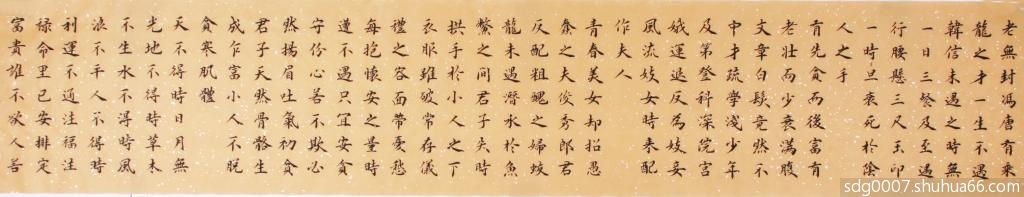 老無封馮唐有乘
龍之才一生不遇
韓信未遇之時無
一日三餐及至遇
行腰懸三尺玉印
一時旦衰死於陰
人之手
有先貧而後富有
老壯而少衰滿腹
文章白髮竟然不
中才疏學淺少年
及第登科深院宮
娥運退反為妓妾
風流妓女時來配
作夫人
青春美女却招愚
蠢之夫俊秀郎君
反配粗醜之婦蛟
龍未遇潛水於魚
鱉之間君子失時
拱手於小人之下
衣服雖破常存儀
禮之容面帶憂愁
每抱懷安之量時
遭不遇只宜安貧
守份心若不欺必
然揚眉吐氣初貧
君子天然骨骼生
成乍富小人不脫
貧寒肌體
天不得時日月無
光地不得時草木
不生水不得時風
浪不平人不得時
利運不通注福注
祿命里已安排定
富貴誰不欲人若
sdg0007.shuhua66.com